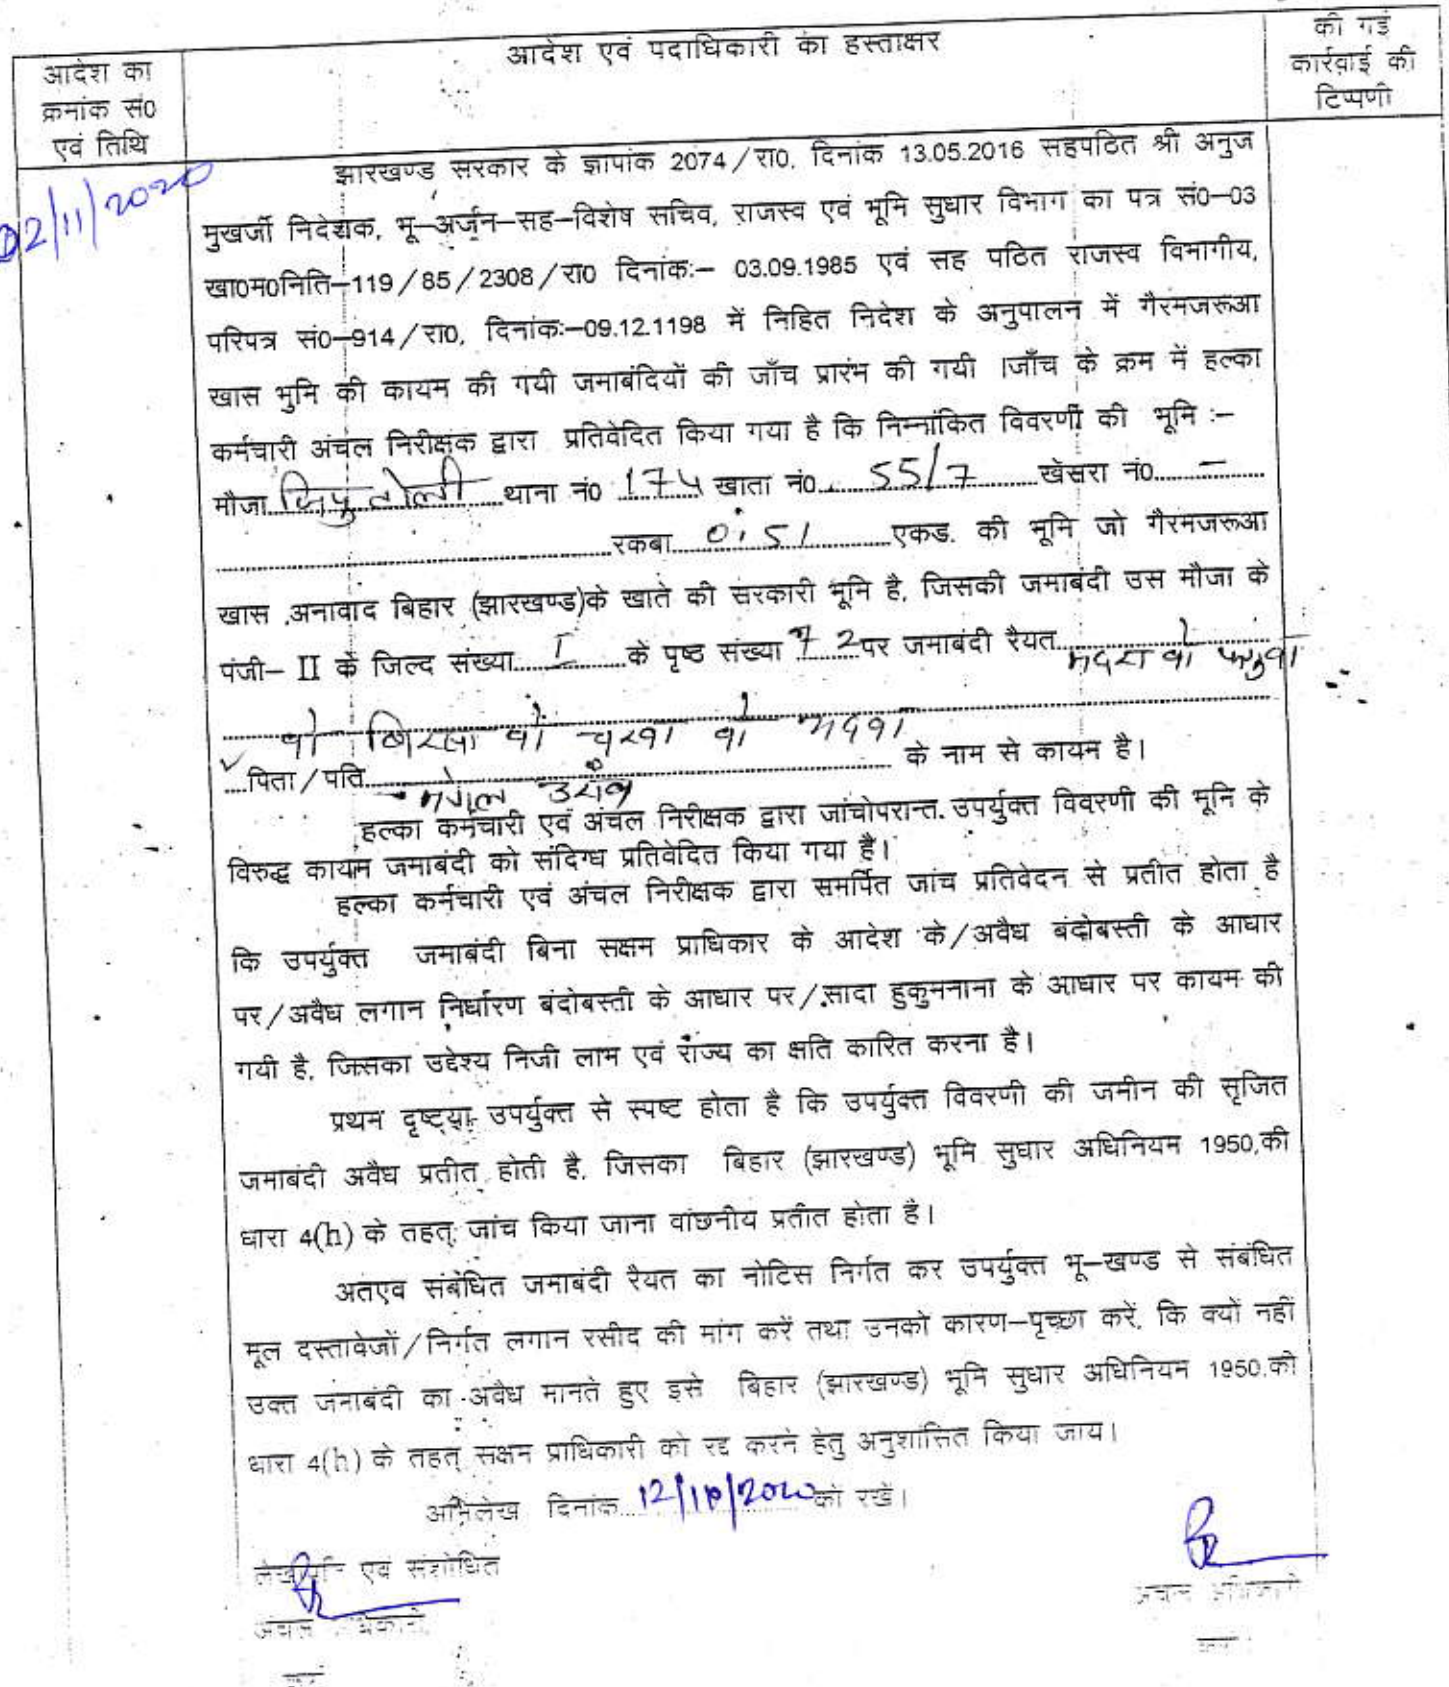 आदेश का
क्रमांक सं0
एवं तिथि
आदेश एवं पदाधिकारी का हस्ताक्षर
की गई
कार्रवाई की
टिप्पणी
02/11/2020
झारखण्ड सरकार के ज्ञापांक 2074/रा0, दिनांक 13.05.2016 सहपठित श्री अनुज
मुखर्जी निदेशक, भू–अर्जन–सह–विशेष सचिव, राजस्व एवं भूमि सुधार विभाग का पत्र सं0–03
खा0म0निति–119/85/2308/रा0 दिनांक:– 03.09.1985 एवं सह पठित राजस्व विभागीय,
परिपत्र सं0–914/रा0, दिनांक:–09.12.1198 में निहित निदेश के अनुपालन में गैरमजरूआ
खास भुमि की कायम की गयी जमाबंदियों की जाँच प्रारंभ की गयी ।जाँच के क्रम में हल्का
कर्मचारी अंचल निरीक्षक द्वारा प्रतिवेदित किया गया है कि निम्नांकित विवरणी की भूमि :–
मौजा थाना नं0 174 खाता नं0 55/7 खेसरा नं0 –
रकबा 0.51 एकड. की भूमि जो गैरमजरूआ
खास अनावाद बिहार (झारखण्ड)के खाते की सरकारी भूमि है, जिसकी जमाबंदी उस मौजा के
पंजी– II के जिल्द संख्या I के पृष्ठ संख्या 72 पर जमाबंदी रैयत
वो बिरसा वो चरवा वो
पिता/पति मंगल उराँव के नाम से कायम है।
हल्का कर्मचारी एवं अंचल निरीक्षक द्वारा जांचोपरान्त उपर्युक्त विवरणी की भूमि के
विरुद्ध कायम जमाबंदी को संदिग्ध प्रतिवेदित किया गया है।
हल्का कर्मचारी एवं अंचल निरीक्षक द्वारा समर्पित जांच प्रतिवेदन से प्रतीत होता है
कि उपर्युक्त जमाबंदी बिना सक्षम प्राधिकार के आदेश के/अवैध बंदोबस्ती के आधार
पर/अवैध लगान निर्धारण बंदोबस्ती के आधार पर/सादा हुकुमनामा के आधार पर कायम की
गयी है, जिसका उद्देश्य निजी लाभ एवं राज्य का क्षति कारित करना है।
प्रथम दृष्ट्या उपर्युक्त से स्पष्ट होता है कि उपर्युक्त विवरणी की जमीन की सृजित
जमाबंदी अवैध प्रतीत होती है, जिसका बिहार (झारखण्ड) भूमि सुधार अधिनियम 1950,की
धारा 4(h) के तहत् जांच किया जाना वांछनीय प्रतीत होता है।
अतएव संबंधित जमाबंदी रैयत का नोटिस निर्गत कर उपर्युक्त भू–खण्ड से संबंधित
मूल दस्तावेजों/निर्गत लगान रसीद की मांग करें तथा उनको कारण–पृच्छा करें, कि क्यों नहीं
उक्त जमाबंदी का अवैध मानते हुए इसे बिहार (झारखण्ड) भूमि सुधार अधिनियम 1950.की
धारा 4(h) के तहत् सक्षम प्राधिकारी को रद्द करने हेतु अनुशासित किया जाय।
अभिलेख दिनांक 12/10/2020 को रखें।
एवं संशोधित
अंचल अधिकारी
अंचल अधिकारी